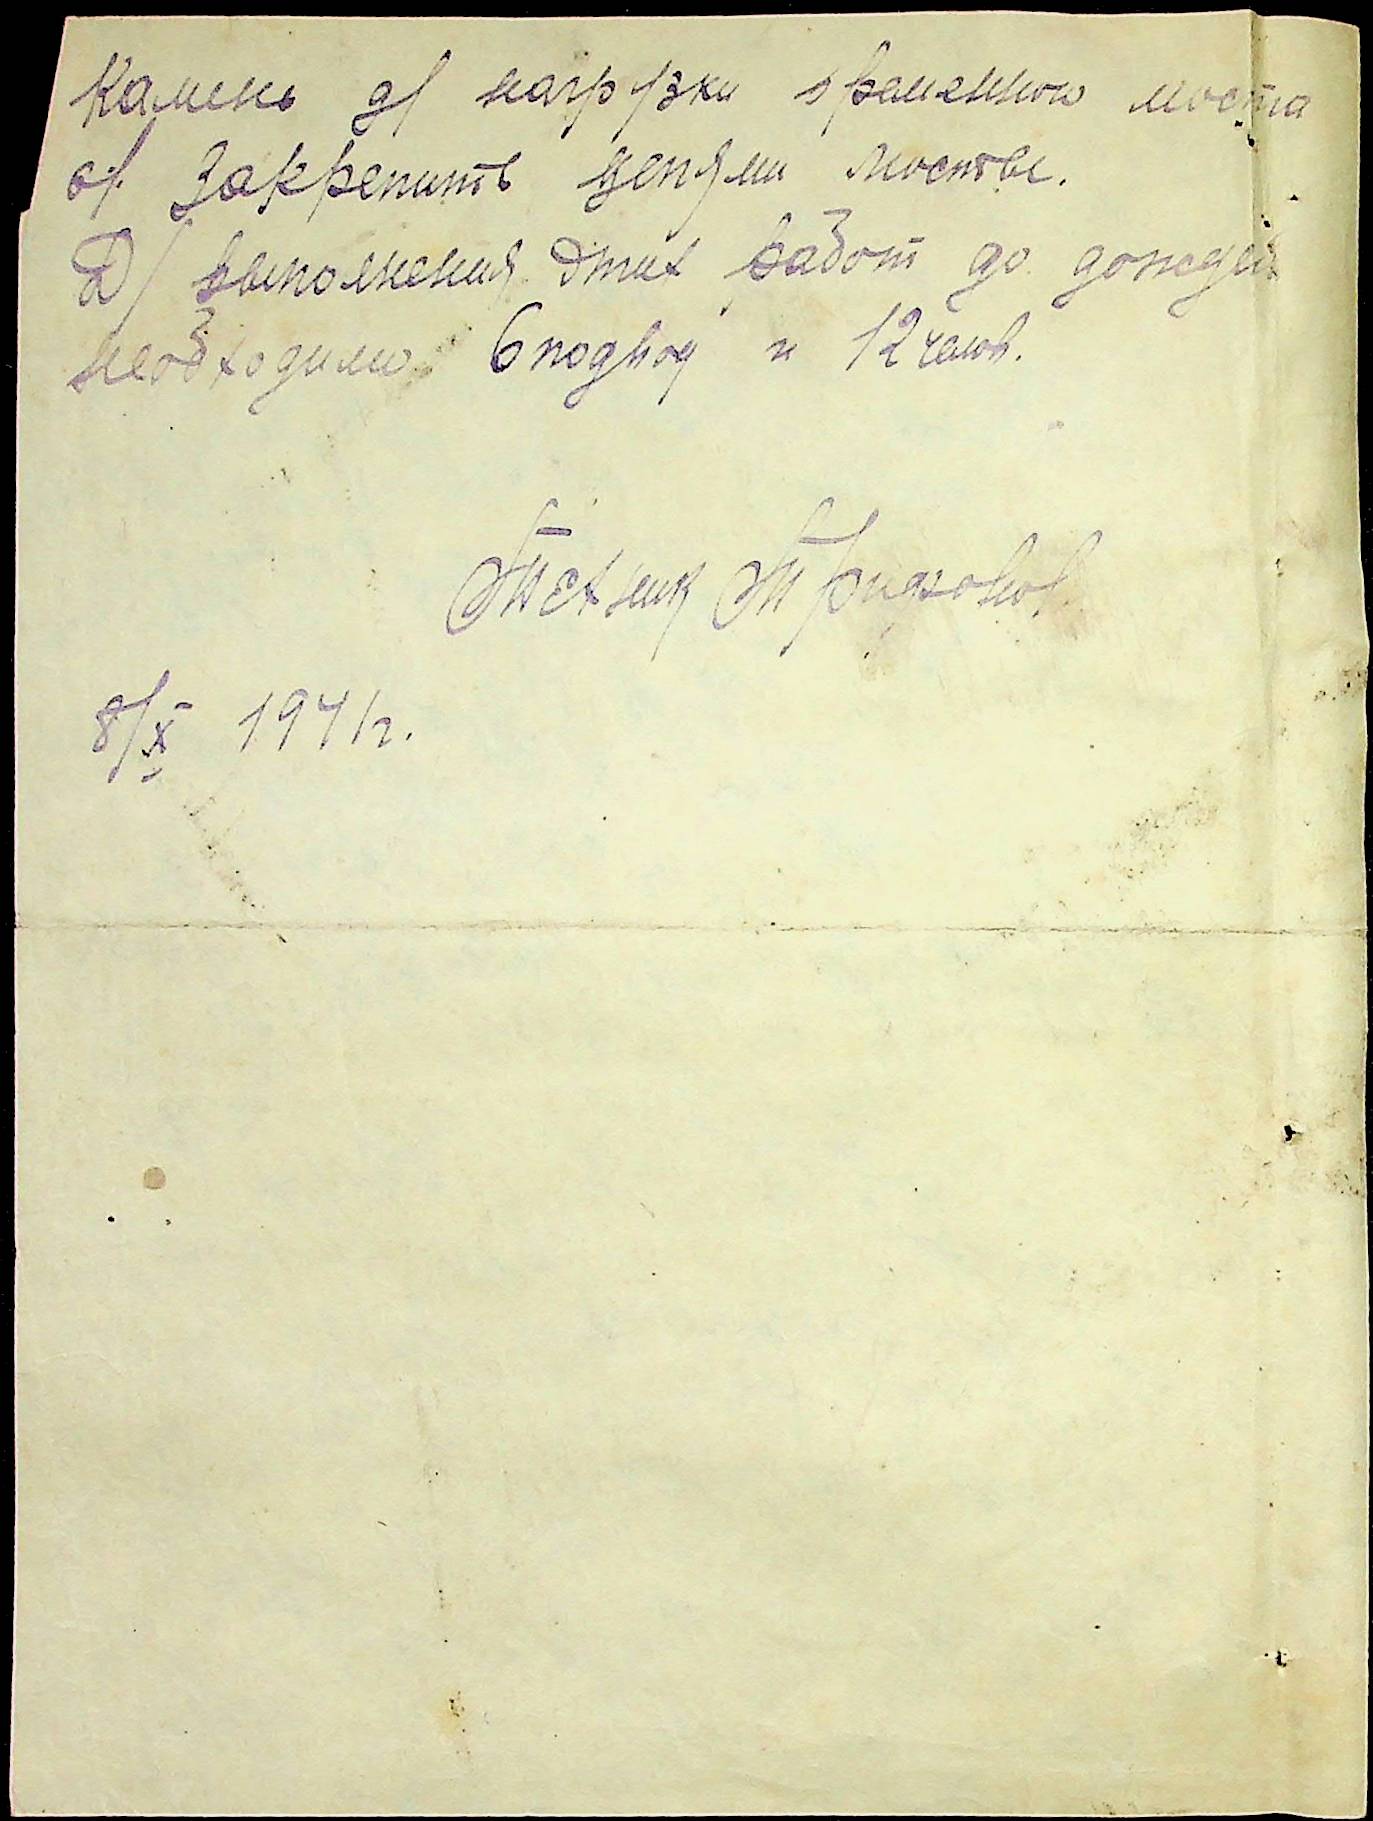 Камень д/ нагрузки временного моста
в/. Закрепить цепями мосты.
Д/ выполнения этих работ до дождей
необходимо 6 подвод и 12 челов.
Техник
8/X 1941 г.